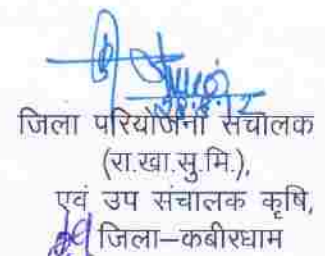 जिला परियोजना संचालक
(रा.खा.सु.मि.),
एवं उप संचालक कृषि,
जिला–कबीरधाम